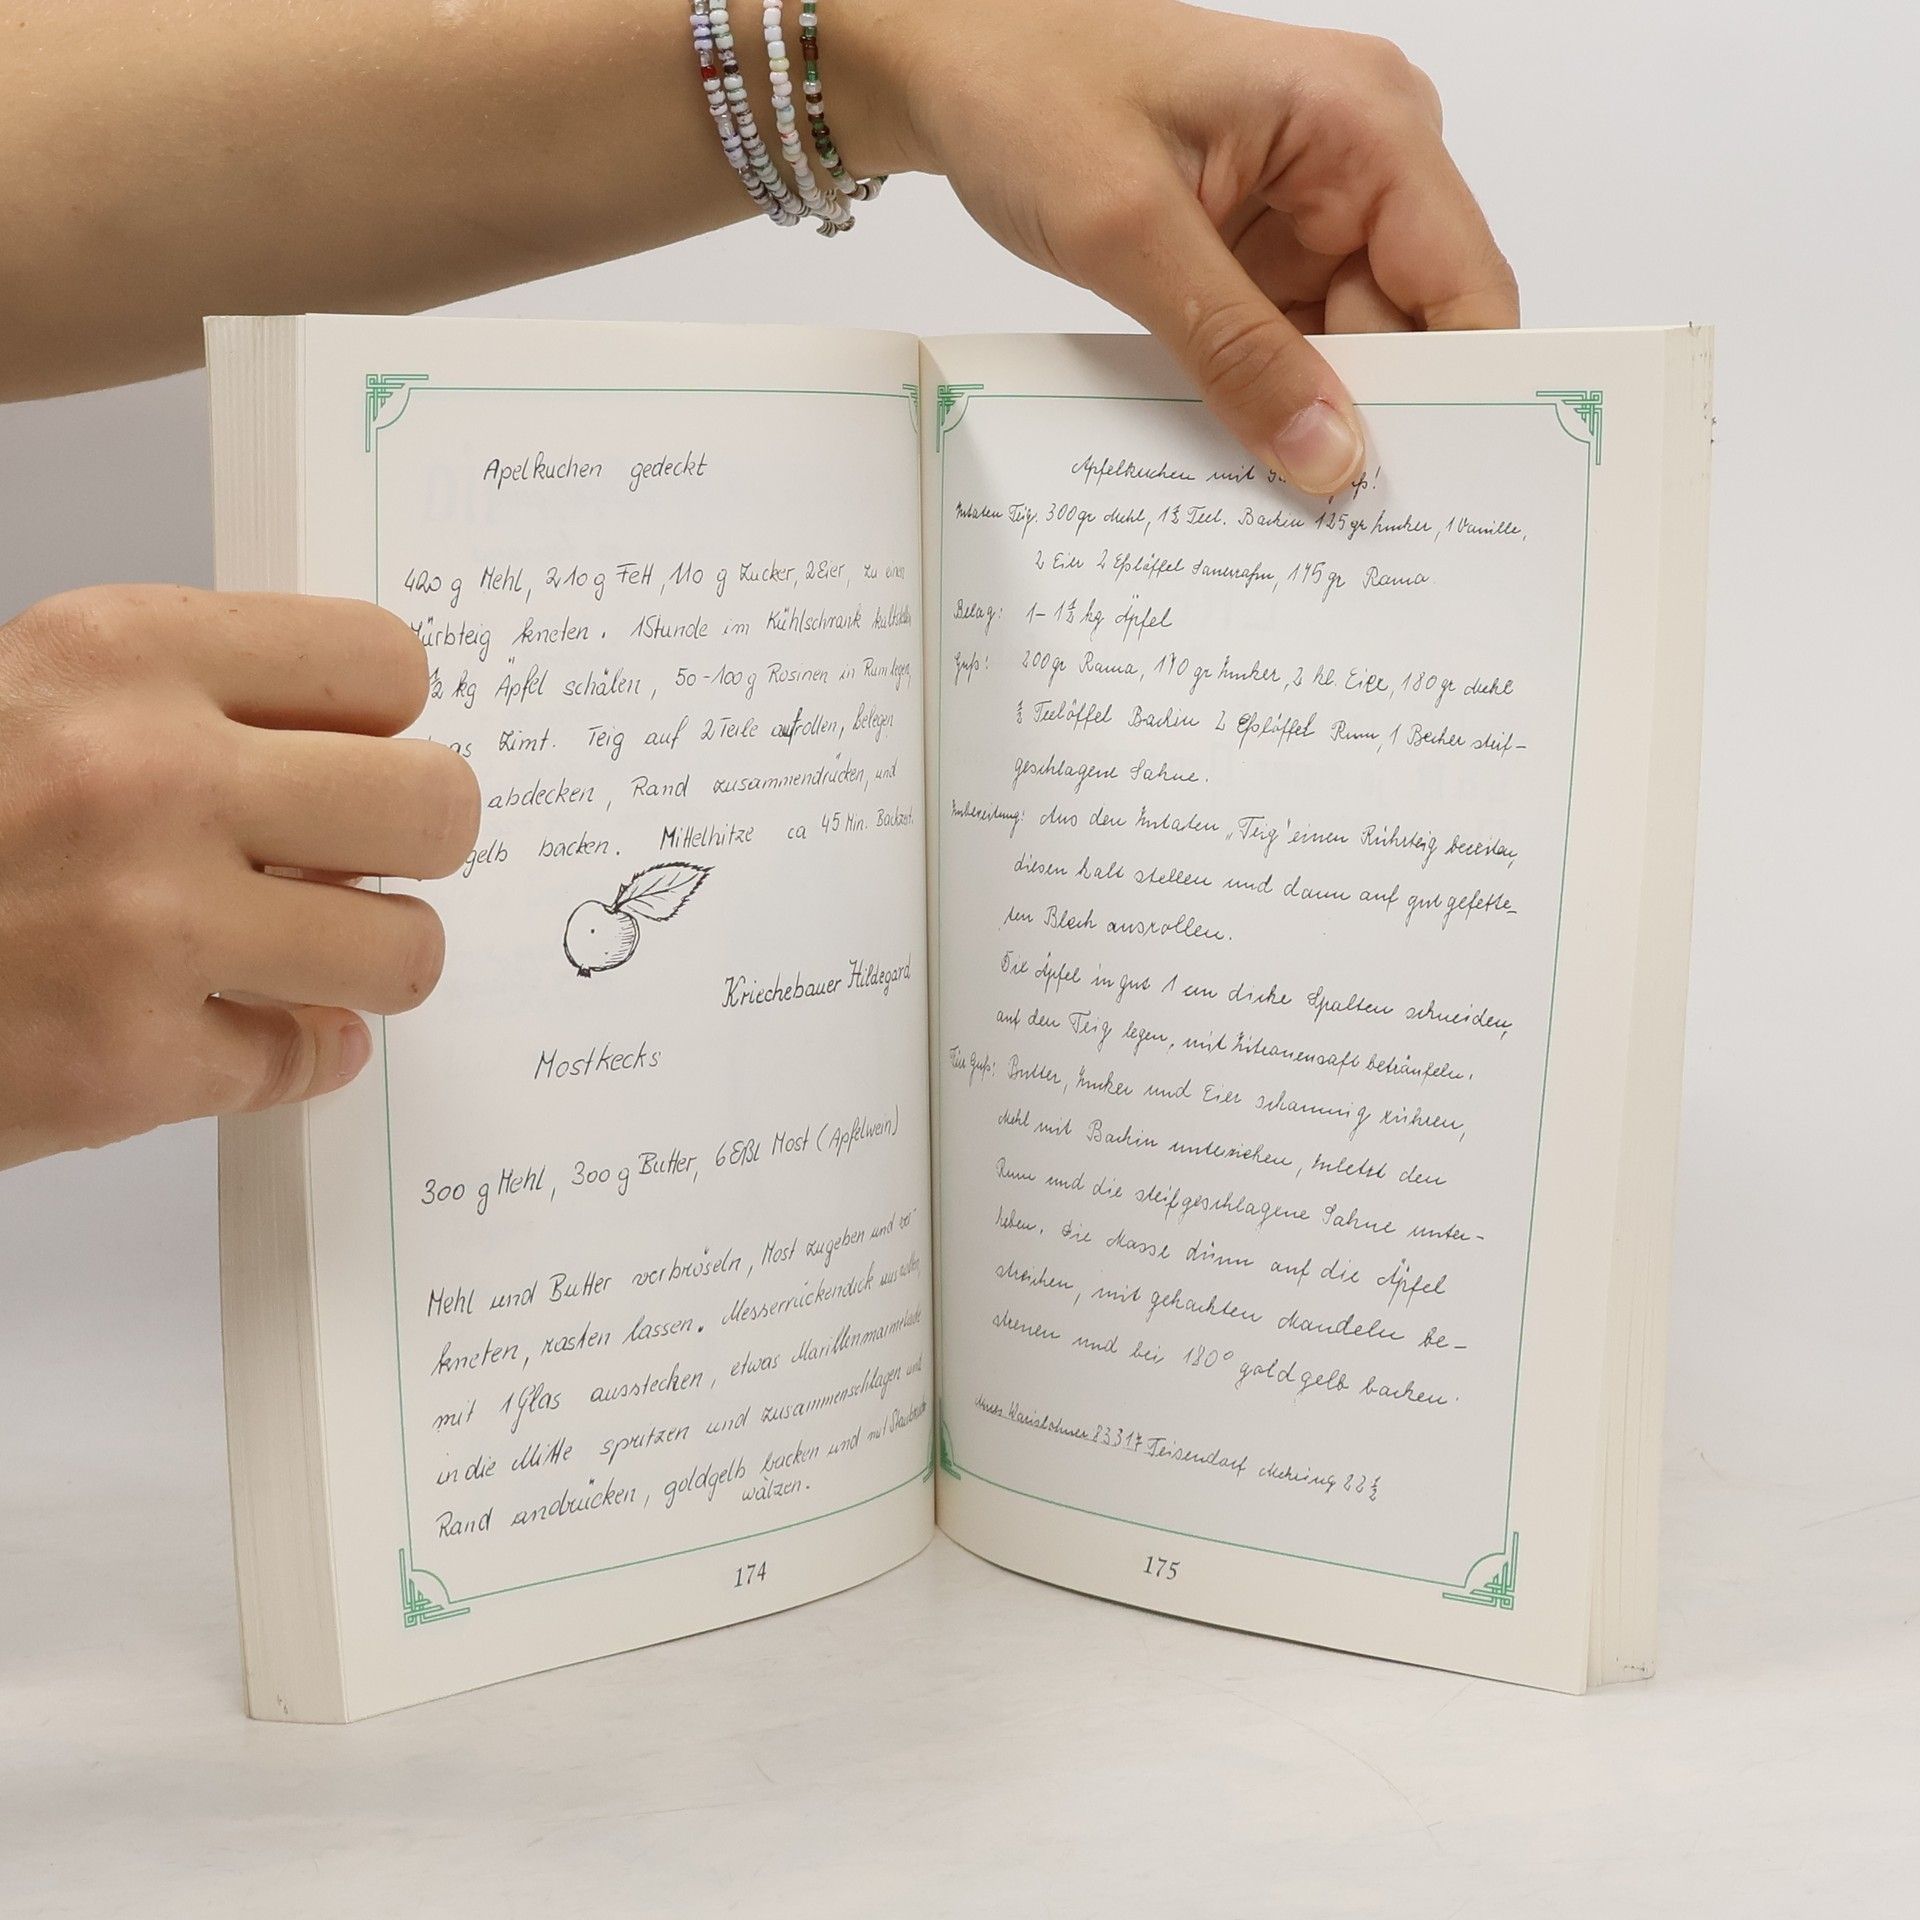 Apelkuchen gedeckt
420 g Mehl, 210 g Fett, 110 g Zucker, 2 Eier, zu einen
Mürbteig kneten. 1 Stunde im Kühlschrank kaltstellen
½ kg Äpfel schälen, 50-100 g Rosinen in Rum legen,
Zimt. Teig auf 2 Teile aufrollen, belegen
abdecken, Rand zusammendrücken, und
gelb backen. Mittelhitze ca 45 Min. Backzeit.
Kriechebauer Hildegard
Mostkecks
300 g Mehl, 300 g Butter, 6 Eßl Most (Apfelwein)
Mehl und Butter verbröseln, Most zugeben und ver-
kneten, rasten lassen. Messerrückendick ausrollen,
mit 1 Glas ausstecken, etwas Marillenmarmelade
in die Mitte spritzen und zusammenschlagen und
Rand andrücken, goldgelb backen und mit Staubzucker
wälzen.
174
Apfelkuchen mit
Zutaten Teig: 300 gr Mehl, 1½ Teel. Backin 125 gr Zucker, 1 Vanille,
2 Eier 2 Eßlöffel Sauerrahm, 175 gr Rama.
Belag: 1-1½ kg Äpfel
Guß! 200 gr Rama, 170 gr Zucker, 3 kl. Eier, 180 gr Mehl
½ Teelöffel Backin 2 Eßlöffel Rum, 1 Becher steif-
geschlagene Sahne.
Zubereitung: Aus den Zutaten „Teig" einen Rührteig bereiten,
diesen kalt stellen und dann auf gut gefette-
ten Blech ausrollen.
Die Äpfel in gut 1 cm dicke Spalten schneiden,
auf den Teig legen, mit Zitronensaft beträufeln.
Für Guß: Butter, Zucker und Eier schaumig rühren,
Mehl mit Backin unterziehen, zuletzt den
Rum und die steifgeschlagene Sahne unter-
heben. Die Masse dünn auf die Äpfel
streichen, mit gehackten Mandeln be-
streuen und bei 180° goldgelb backen.
83317 Teisendorf Mehring 22½
175